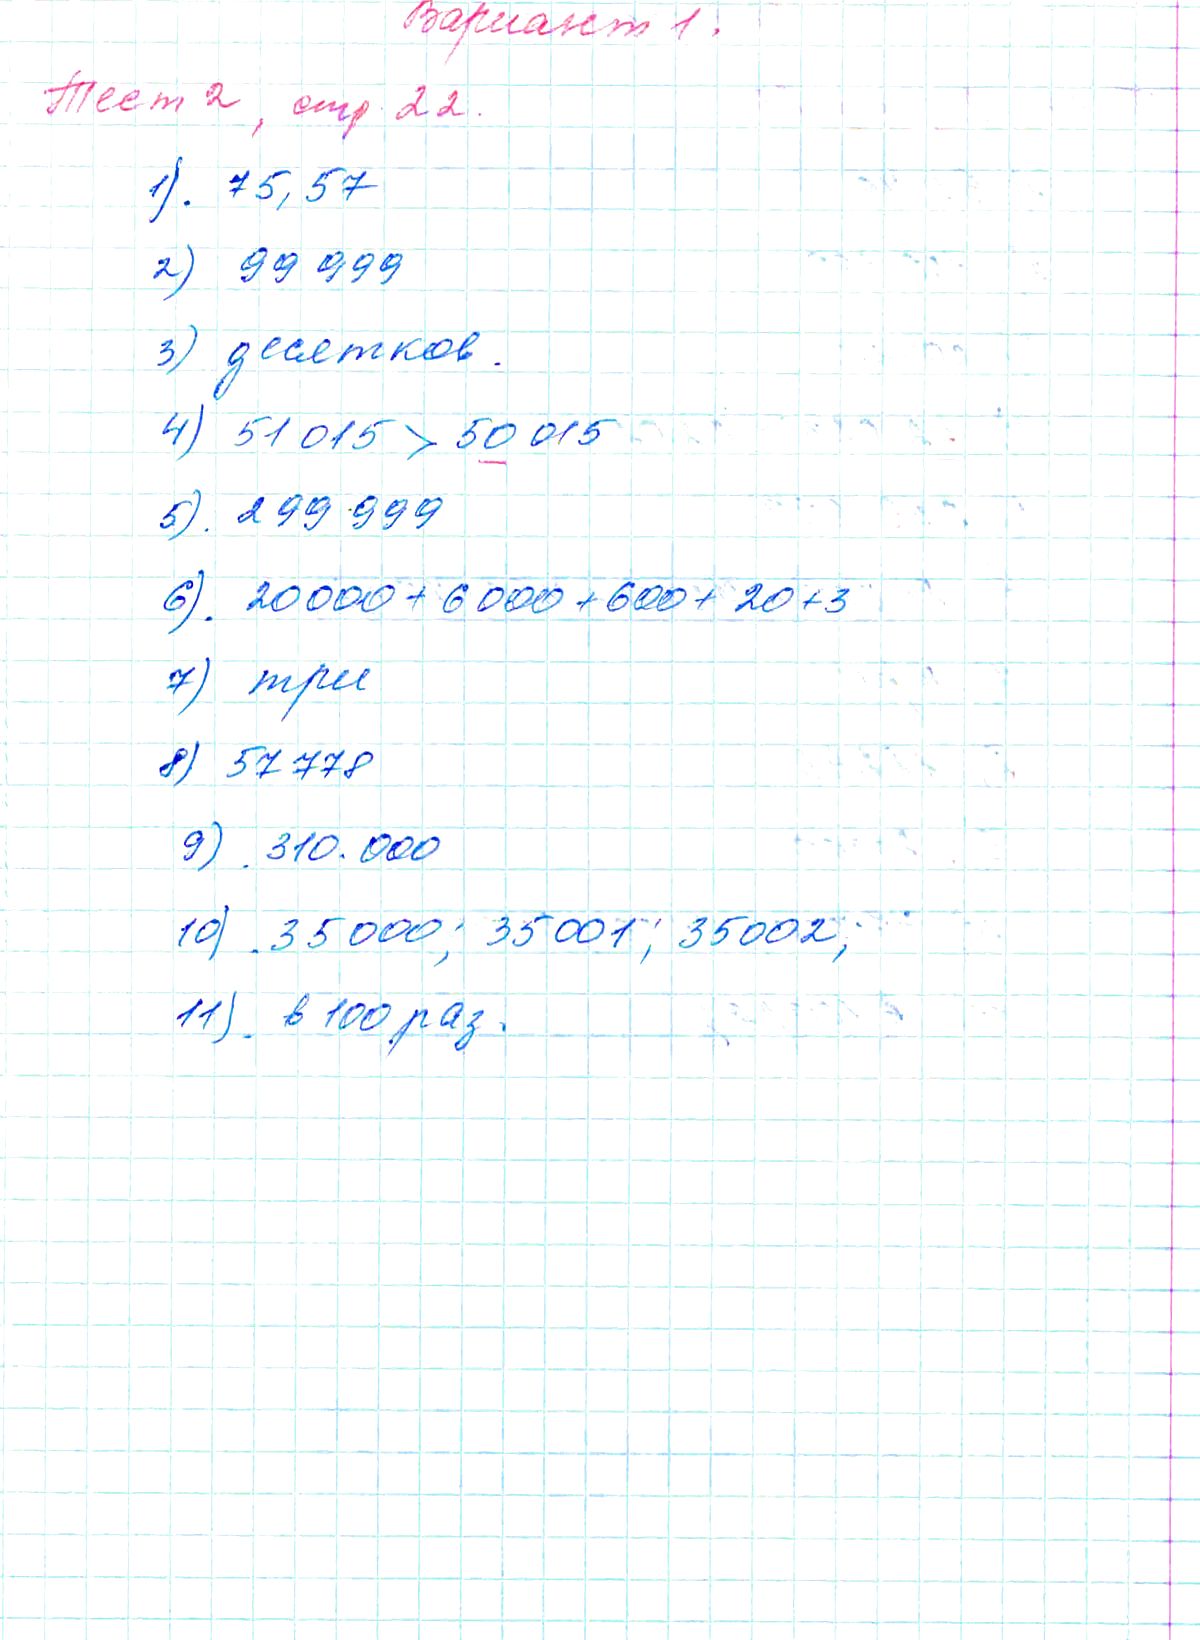 Вариант 1.
Тест 2, стр. 22.
1). 75, 57
2) 99 999
3) десятков.
4) 51 015 > 50 015
5). 299 999
6). 20000 + 6000 + 600 + 20 + 3
7) три
8) 57 778
9) . 310.000
10) . 35 000; 35 001; 35002;
11). в 100 раз.